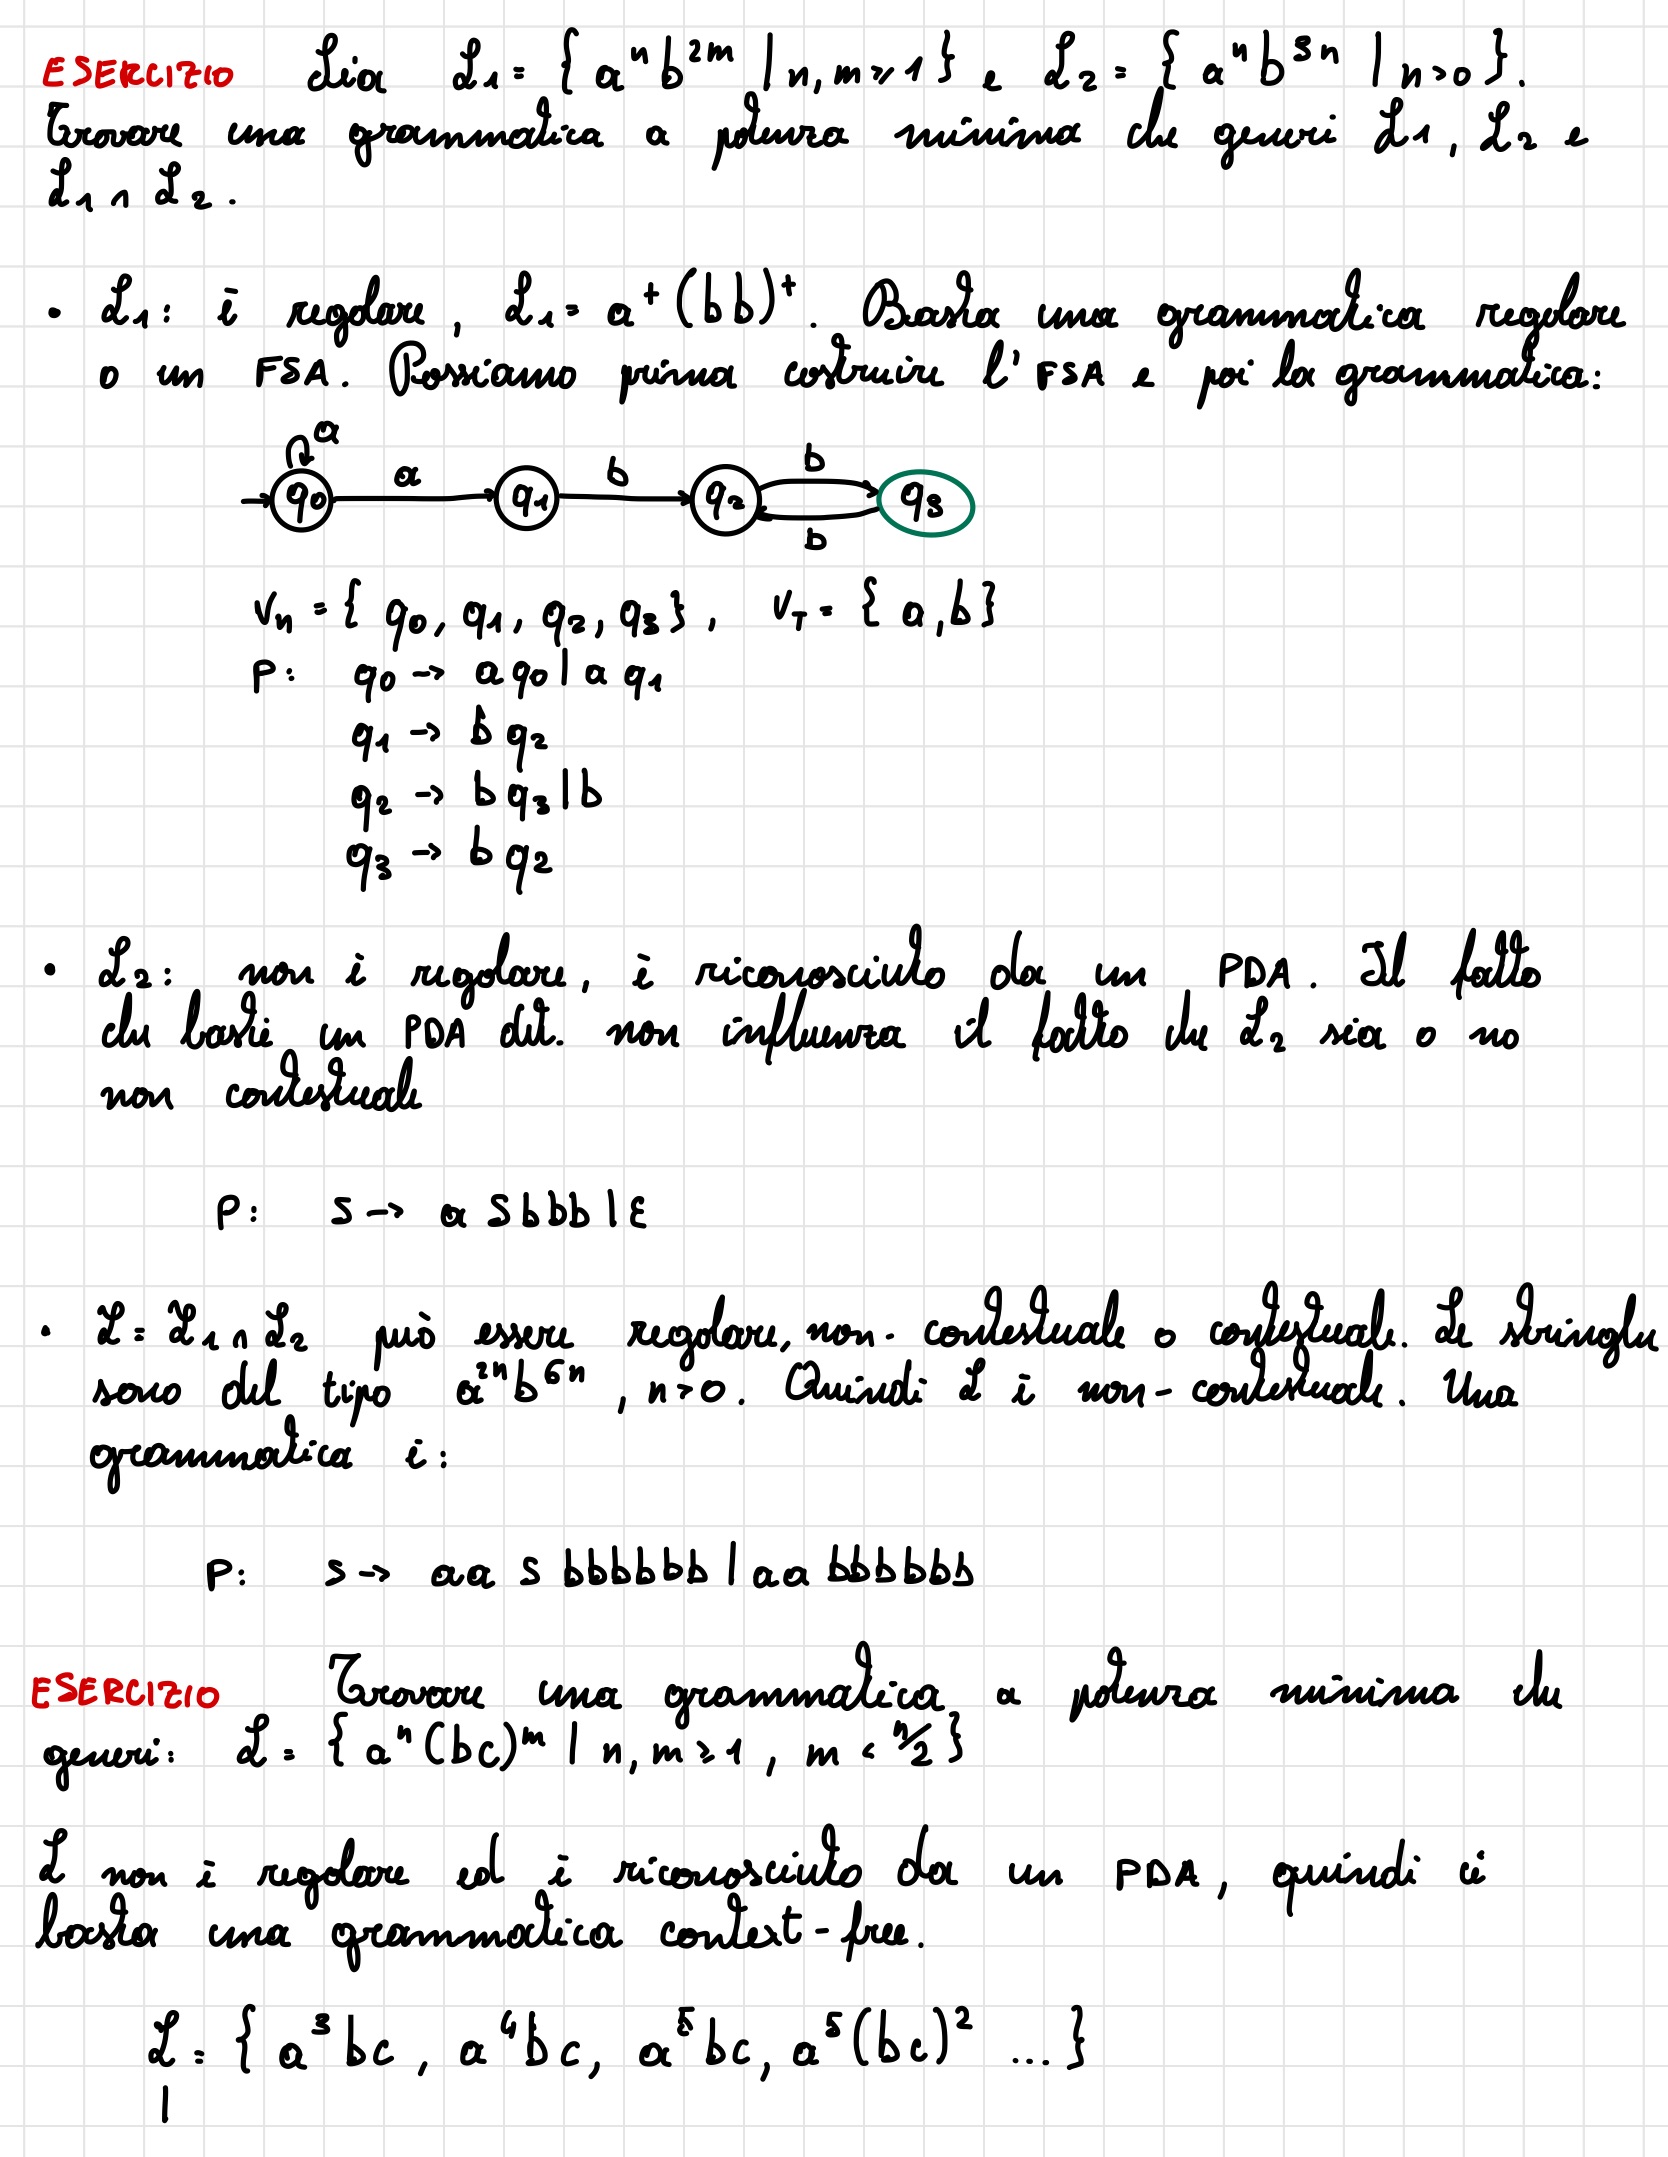 ESERCIZIO Sia L₁ = { aⁿb²ᵐ | n, m ≥ 1 } e L₂ = { aⁿb³ⁿ | n>0 }.
Trovare una grammatica a potenza minima che generi L₁, L₂ e
L₁ ∩ L₂.
• L₁: è regolare, L₁ = a⁺(bb)⁺. Basta una grammatica regolare
o un FSA. Possiamo prima costruire l'FSA e poi la grammatica:
a
a b b
q₀ q₁ q₂ q₃
b
Vₙ = { q₀, q₁, q₂, q₃ }, V_T = { a, b }
P: q₀ → a q₀ | a q₁
q₁ → b q₂
q₂ → b q₃ | b
q₃ → b q₂
• L₂: non è regolare, è riconosciuto da un PDA. Il fatto
che basti un PDA det. non influenza il fatto che L₂ sia o no
non contestuale
P: S → a S bbb | ε
• L = L₁ ∩ L₂ può essere regolare, non-contestuale o contestuale. Le stringhe
sono del tipo a²ⁿb⁶ⁿ, n>0. Quindi L è non-contestuale. Una
grammatica è:
P: S → aa S bbbbbb | aa bbbbbb
ESERCIZIO Trovare una grammatica a potenza minima che
generi: L = { aⁿ(bc)ᵐ | n, m ≥ 1, m < n/2 }
L non è regolare ed è riconosciuto da un PDA, quindi ci
basta una grammatica context-free.
L = { a³bc, a⁴bc, a⁵bc, a⁵(bc)² ... }